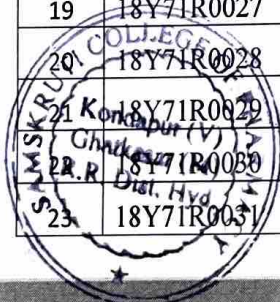 19 18Y71R0027
20 18Y71R0028
21 18Y71R0029
22 18Y71R0030
23 18Y71R0031
SAMSKRUTI COLLEGE OF
Kondapur (V)
Ghatkesar
R.R. Dist. Hyd